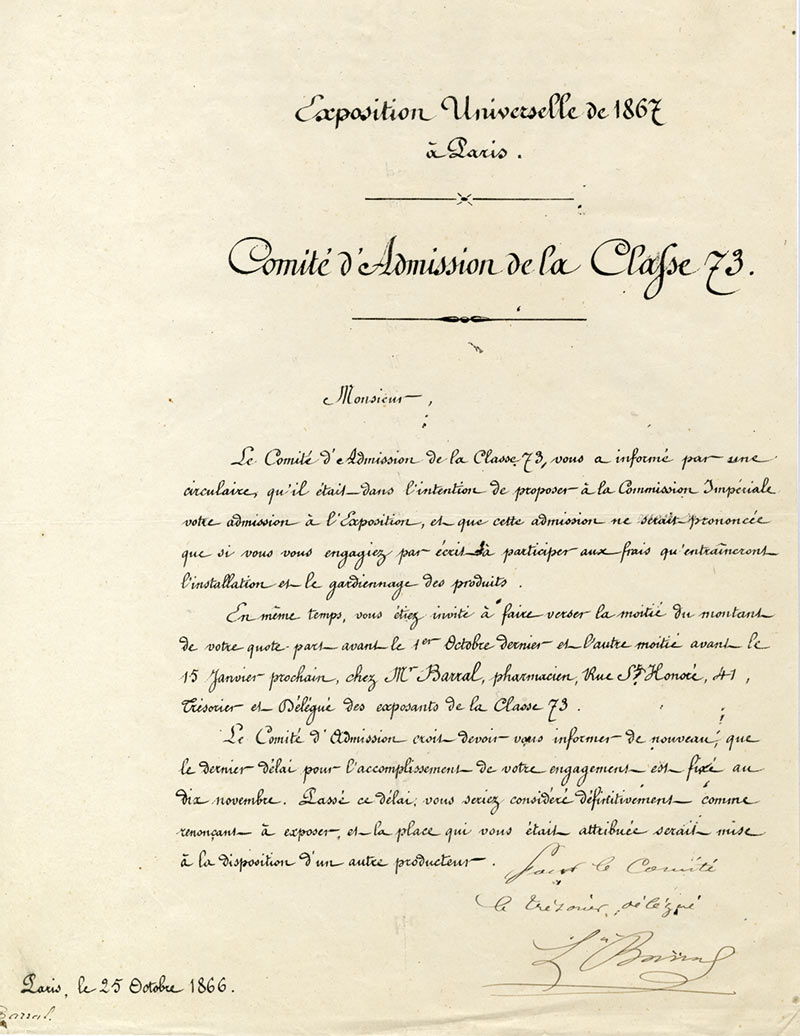 Exposition Universelle de 1867
à Paris.
Comité d'Admission de la Classe 73.
Monsieur,
Le Comité d'Admission de la Classe 73, vous a informé par une
circulaire, qu'il était dans l'intention de proposer à la Commission Impériale
votre admission à l'Exposition, et que cette admission ne serait prononcée
que si vous vous engagiez par écrit à participer aux frais qu'entraîneront
l'installation et le gardiennage des produits.
En même temps, vous étiez invité à faire verser la moitié du montant
de votre quote-part avant le 1er Octobre dernier et l'autre moitié avant le
15 Janvier prochain, chez Mr Barral, pharmacien, Rue St Honoré, 41,
Trésorier et Délégué des exposants de la Classe 73.
Le Comité d'Admission croit devoir vous informer de nouveau, que
le dernier délai pour l'accomplissement de votre engagement est fixé au
dix novembre. Passé ce délai, vous seriez considéré définitivement comme
renonçant à exposer, et la place qui vous était attribuée serait mise
à la disposition d'un autre producteur.
Pour le Comité
le trésorier, délégué
Barral
Paris, le 25 Octobre 1866.
Barral.